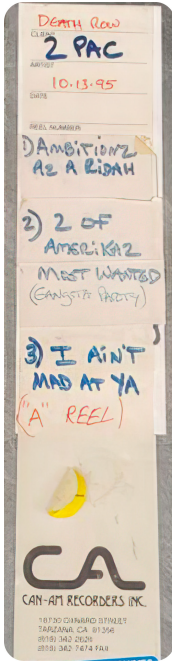 DEATH ROW
CLIENT
2 PAC
ARTIST
10.13.95
DATE
REEL NUMBER
1) AMBITIONZ
AZ A RIDAH
2) 2 OF
AMERIKAZ
MOST WANTED
(GANGSTA PARTY)
3) I AIN'T
MAD AT YA
("A" REEL)
CA
CAN-AM RECORDERS INC.
18730 OXNARD STREET
TARZANA, CA 91356
(818) 342 2626
(818) 342 7474 FAX